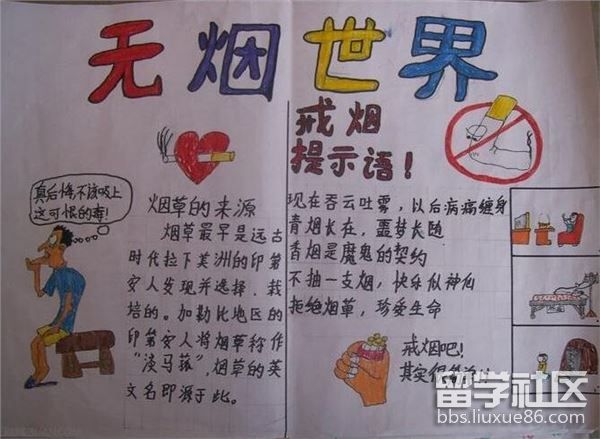 无烟世界
真后悔,不该吸上
这可恨的毒!
烟草的来源
烟草最早是远古
时代拉丁美洲的印第
安人发现并选择.栽
培的。加勒比地区的
印第安人将烟草称作
“淡马菰”,烟草的英
文名即源于此。
戒烟
提示语!
现在吞云吐雾,以后病痛缠身
青烟长在,噩梦长随
香烟是魔鬼的契约
不抽一支烟,快乐似神仙
拒绝烟草,珍爱生命
戒烟吧!
其实很
留学社区
bbs.liuxue86.com